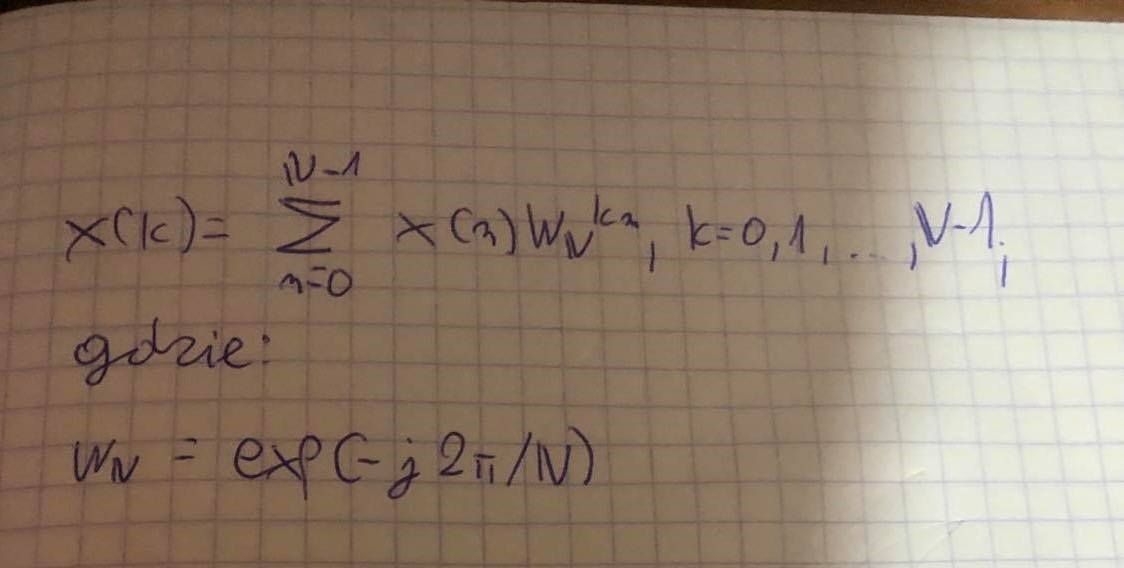 X(k) = \sum_{n=0}^{N-1} x(n) W_N^{kn}, k=0,1,...,N-1,
gdzie:
W_N = exp(-j2π/N)